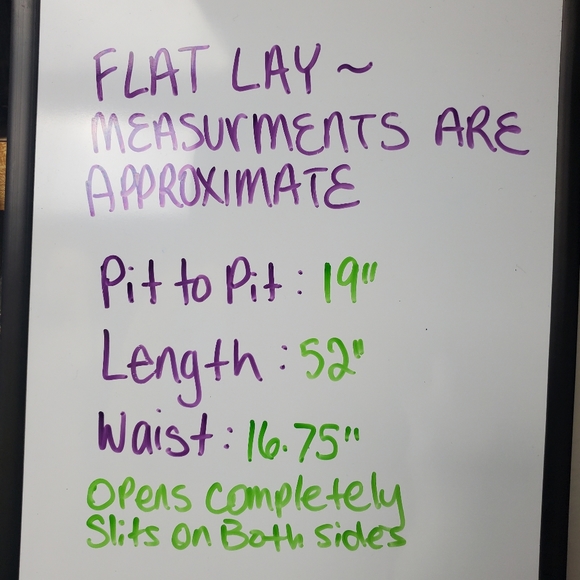 FLAT LAY ~
MEASURMENTS ARE
APPROXIMATE
Pit to Pit: 19"
Length: 52"
Waist: 16.75"
Opens completely
Slits on Both sides